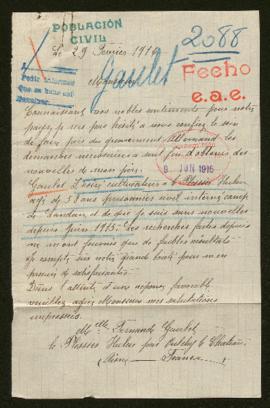 POBLACIÓN
CIVIL
2088
Le 29 Février 1916
Pedir informes
Que se hace hoy
Fecho
e.a.e.
Monsieur
Connaissant vos nobles sentiments pour notre
pays, je n'ai pas hésité à vous confier le soin
de faire près du gouvernement Allemand les
démarches nécessaires afin d'obtenir des
nouvelles de mon père
8 JUN 1916
cultivateur à Plessis Huleu
âgé de 58 ans prisonnier civil interné camp
de Landau et dont je suis sans nouvelles
depuis 1915. Les recherches faites depuis
un an ont fourni que de faibles résultats
je compte sur votre grande bonté pour m'en
de satisfaisantes.
Dans l'attente d'une réponse favorable
veuillez agréer Monsieur mes salutations
empressées.
Melle Fernande
le Plessis Huleu par Oulchy le Château
Aisne France